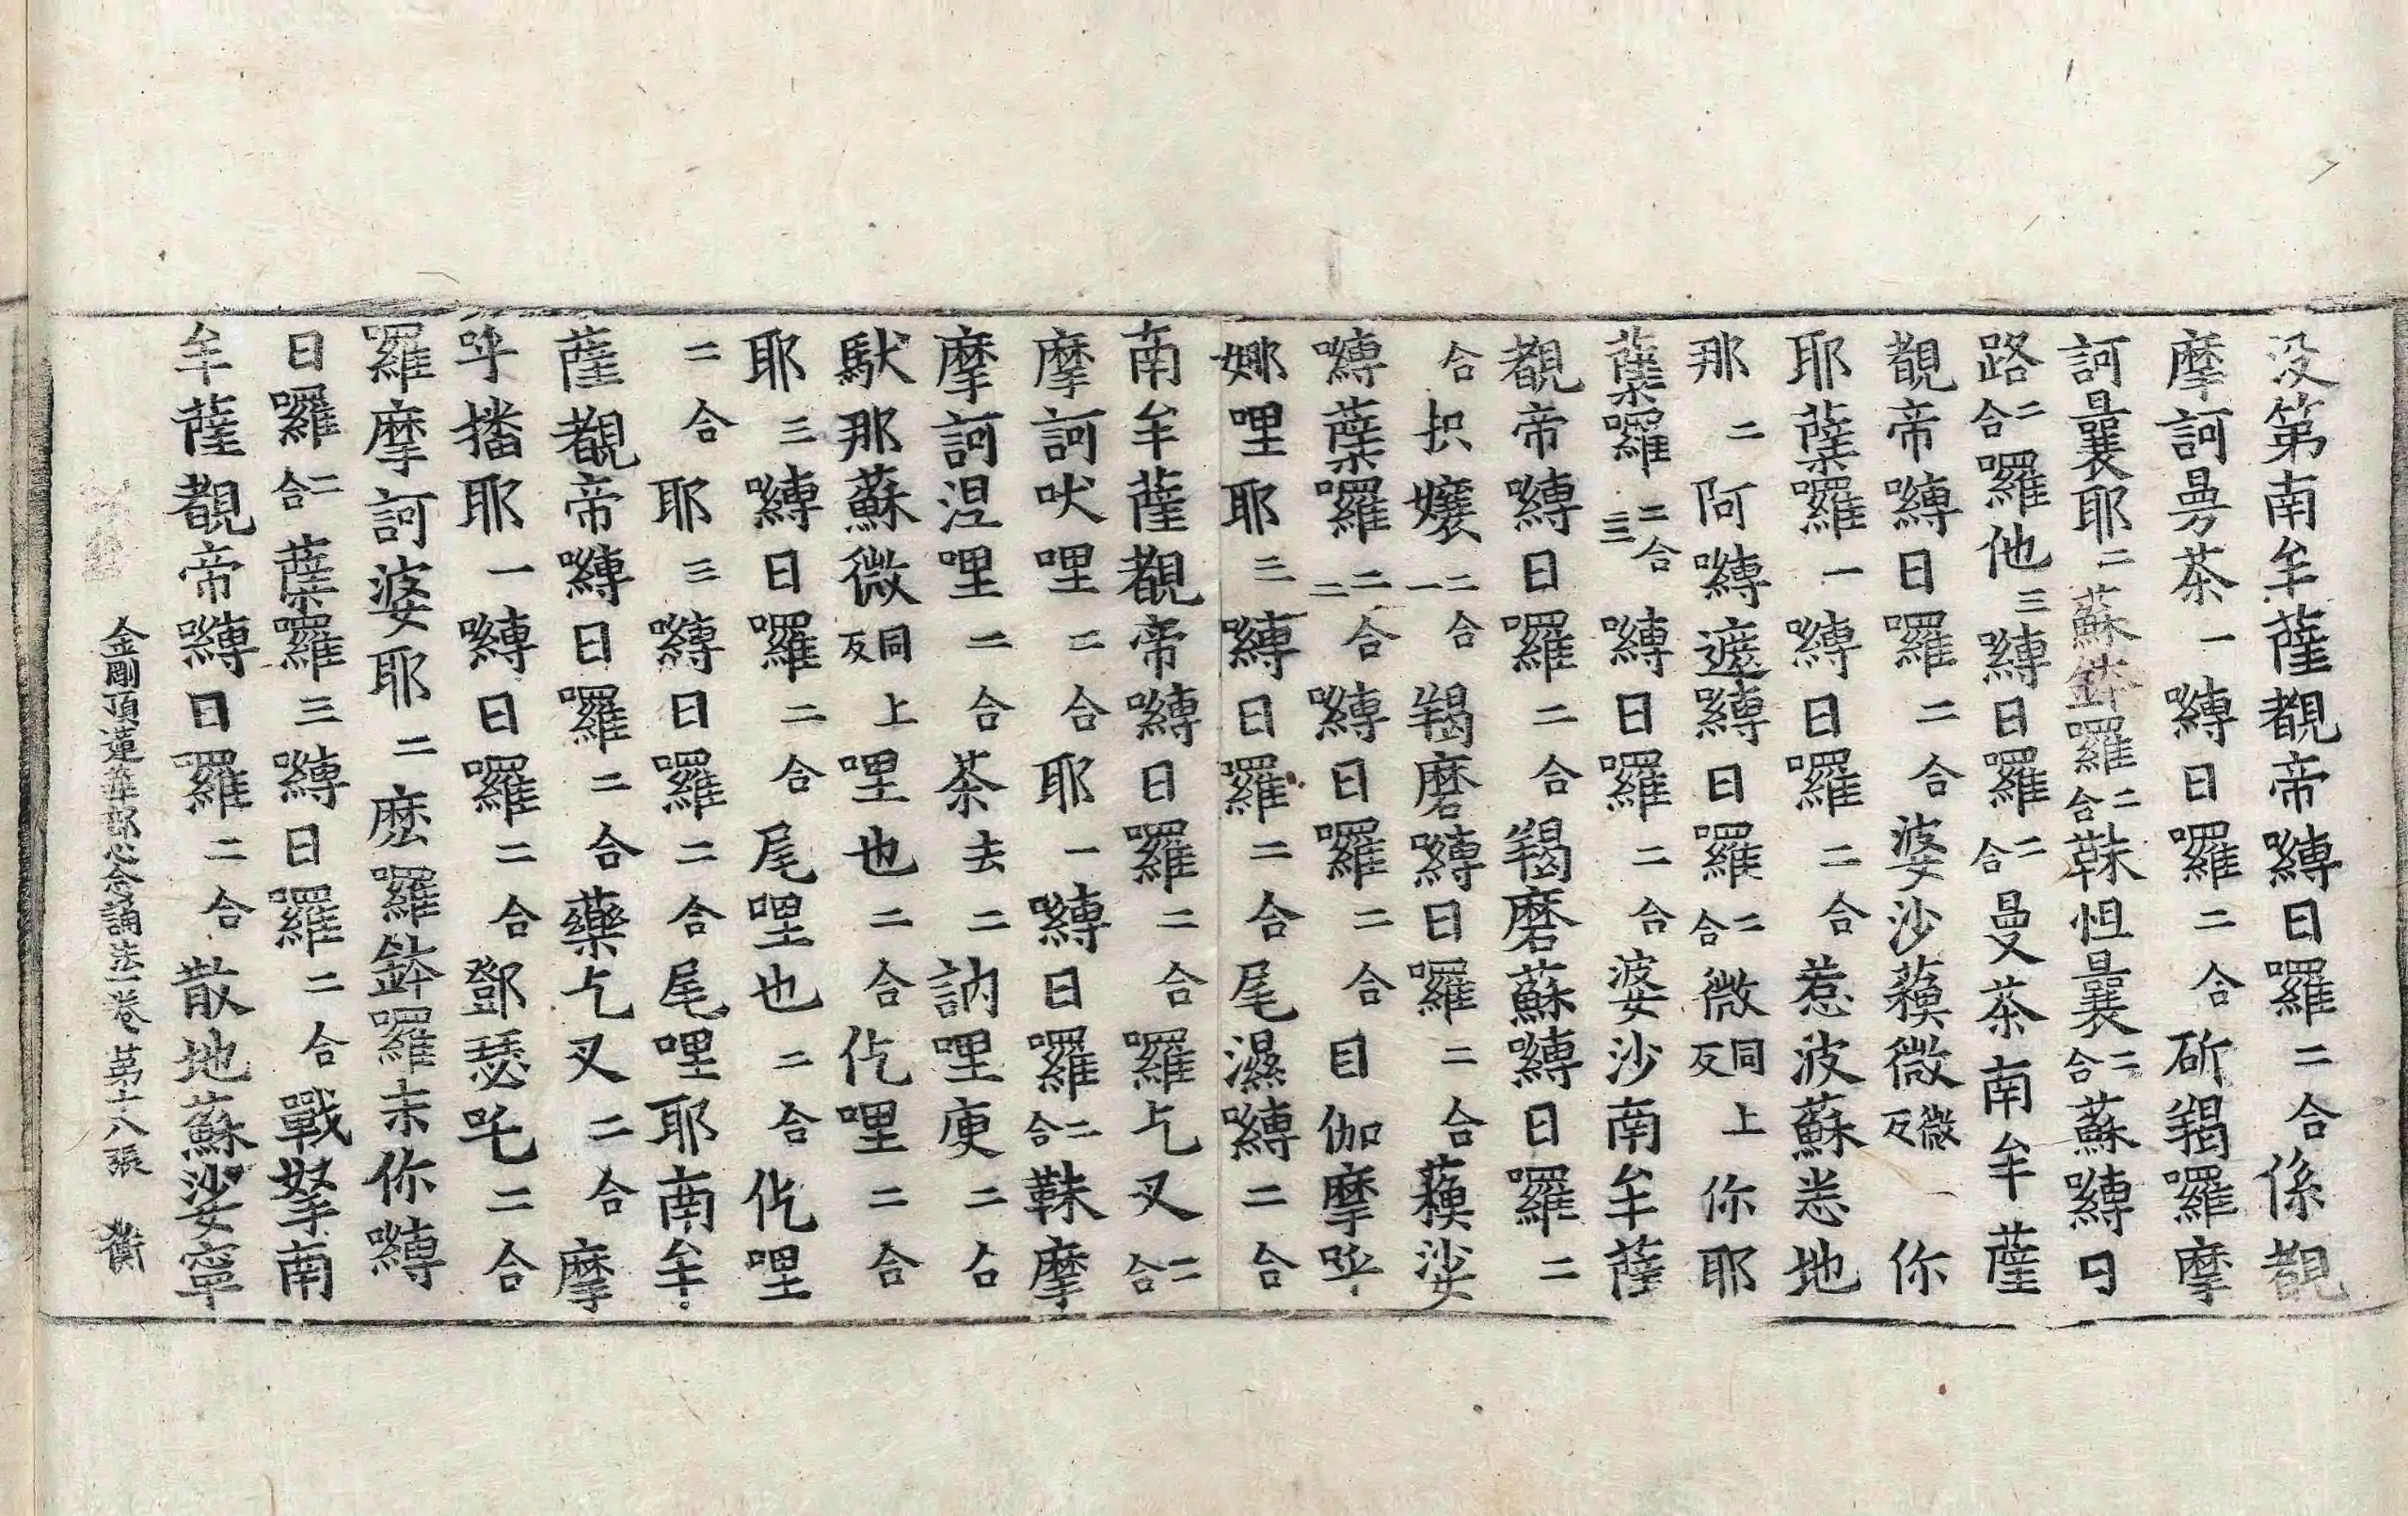 没第南牟薩覩帝嚩日囉二合係覩
摩訶曼荼一嚩日囉二合斫羯囉摩
訶曩耶二蘇鉢囉二合靺怛曩二合蘇嚩日
路二合囉他三嚩日囉二合曼荼南牟薩
覩帝嚩日囉二合婆沙蘓微微一反你
耶薩囉一嚩日囉二合惹波蘇悉地
那二阿嚩遮嚩日囉二合微同上反你耶
薩囉二合三嚩日囉二合婆沙南牟薩
覩帝嚩日囉二合羯磨蘇嚩日囉二
合抧孃二合一羯磨嚩日囉二合蘓娑
嚩薩囉二合二嚩日囉二合目伽摩呼
娜哩耶三嚩日囉二合尾濕嚩二合
南牟薩覩帝嚩日囉二合囉乞叉二合
摩訶吠哩二合耶一嚩日囉二合靺摩
摩訶涅哩二合荼去二訥哩庾二合
馱那蘇微同上反哩也二合仡哩二合
耶三嚩日囉二合尾哩也二合仡哩
二合耶三嚩日囉二合尾哩耶南牟
薩覩帝嚩日囉二合藥乞叉二合摩
呼播耶一嚩日囉二合鄧瑟吒二合
囉摩訶婆耶二麽囉鉢囉末你嚩
日囉二合薩囉三嚩日囉二合戰拏南
牟薩覩帝嚩日囉二合散地蘇娑寧
金剛頂蓮華部心念誦法一卷 第十八張 衡